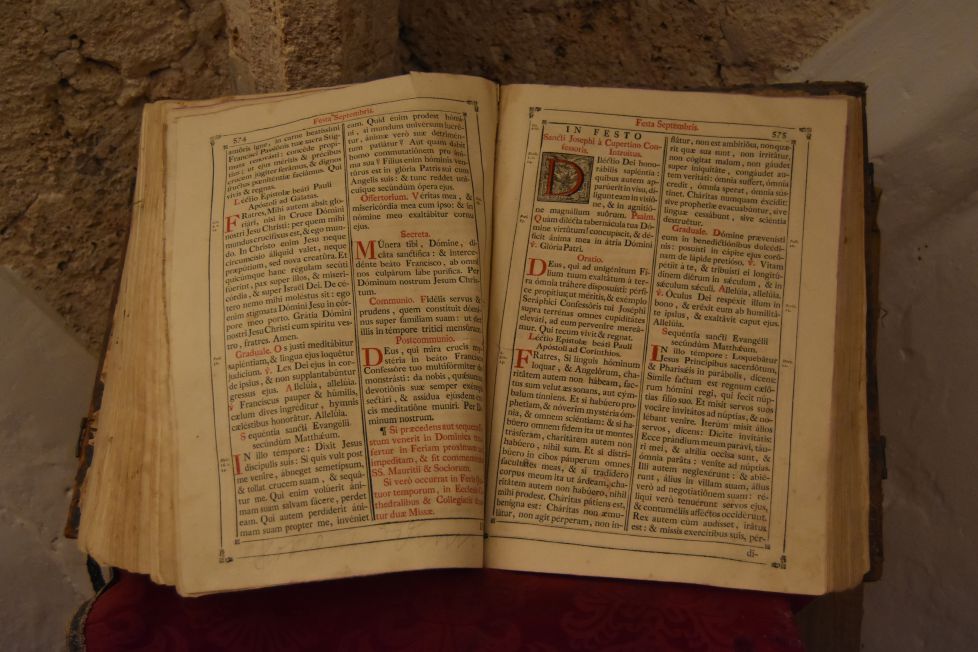 574
Festa Septembris.
amóris igne, in carne beatíssimi
Francísci Passiónis tuæ sacra Stig-
mata renovásti: concéde propí-
tius; ut ejus méritis & précibus
crucem júgiter ferámus, & dignos
fructus pœniténtiæ faciámus. Qui
vivis & regnas.
Léctio Epístolæ beáti Pauli
Apóstoli ad Gálatas.
FRatres, Mihi autem absit glo-
riári, nisi in Cruce Dómini
nostri Jesu Christi: per quem mihi
mundus crucifíxus est, & ego mun-
do. In Christo enim Jesu neque
circumcísio áliquid valet, neque
præpútium, sed nova creatúra. Et
quicumque hanc régulam secúti
fúerint, pax super illos, & miseri-
córdia, & super Israël Dei. De cé-
tero nemo mihi moléstus sit: ego
enim stígmata Dómini Jesu in cór-
pore meo porto. Grátia Dómini
nostri Jesu Christi cum spíritu ves-
tro, fratres. Amen.
Graduale. Os justi meditábitur
sapiéntiam, & lingua ejus loquétur
judícium. ℣. Lex Dei ejus in cor-
de ipsíus, & non supplantabúntur
gressus ejus. Allelúia, allelúia.
℣. Francíscus pauper & húmilis,
cælum dives ingréditur, hymnis
cæléstibus honorátur. Allelúia.
Sequéntia sancti Evangélii
secúndùm Matthæum.
IN illo témpore: Dixit Jesus
discípulis suis: Si quis vult post
me veníre, ábneget semetípsum,
& tollat crucem suam, & sequá-
tur me. Qui enim volúerit áni-
mam suam salvam fácere, perdet
eam. Qui autem perdíderit áni-
mam suam propter me, invéniet
eam. Quid enim prodest hómi-
ni, si mundum univérsum lucré-
tur, ánimæ verò suæ detrimén-
tum patiátur? Aut quam dabit
homo commutatiónem pro áni-
ma sua? Fílius enim hóminis ven-
túrus est in glória Patris sui cum
Angelis suis: & tunc reddet uni-
cuíque secúndùm ópera ejus.
Offertorium. Véritas mea, &
misericórdia mea cum ipso: & in
nómine meo exaltábitur cornu
ejus.
Secreta.
MÚnera tibi, Dómine, di-
cáta sanctífica: & intercé-
dénte beáto Francísco, ab omni
nos culpárum labe purífica. Per
Dóminum nostrum Jesum Chris-
tum.
Communio. Fidélis servus &
prudens, quem constítuit dómi-
nus super famíliam suam: ut det
illis in témpore trítici mensúram.
Postcommunio.
DEus, qui mira crucis my-
stéria in beáto Francísco
Confessóre tuo multifórmiter de-
monstrásti: da nobis, quæsumus,
devotiónis suæ semper exémpla
sectári, & assídua ejúsdem cru-
cis meditatióne muníri. Per Dó-
minum nostrum.
¶ Si præcedens aut sequens
stum venerit in Dominica
fertur in Feriam proximam
impeditam, & fit commemor.
SS. Mauritii & Sociorum.
Si verò occurrat in Feria
tuor temporum, in Ecclesiis
thedralibus & Collegiatis
tur duæ Missæ.
Festa Septembris.
575
IN FESTO
Sancti Josephi à Cupertino Con-
fessoris, Introitus.
DIléctio Dei hono-
rábilis sapiéntia:
quibus autem ap-
parúerit in visu, dí-
ligunt eam in visió-
ne, & in agnitió-
ne magnálium suórum. Psalm.
Quàm dilécta tabernácula tua Dó-
mine virtútum! concupíscit, & dé-
ficit ánima mea in átria Dómini
℣. Glória Patri.
Oratio.
DEus, qui ad unigénitum Fí-
lium tuum exaltátum à ter-
ra ómnia tráhere disposuísti: pérfi-
ce propítius; ut méritis, & exémplo
Seráphici Confessóris tui Joséphi
supra terrénas omnes cupiditátes
eleváti, ad eum perveníre mereá-
mur. Qui tecum vivit & regnat.
Léctio Epístolæ beáti Pauli
Apóstoli ad Corínthios.
FRatres, Si linguis hóminum
loquar, & Angelórum, cha-
ritátem autem non hábeam, fac-
tus sum velut æs sonans, aut cým-
balum tínniens. Et si habúero pro-
phetíam, & nóverim mystéria óm-
nia, & omnem sciéntiam: & si ha-
búero omnem fidem ita ut montes
tránsferam, charitátem autem non
habúero, nihil sum. Et si distri-
búero in cibos páuperum omnes
facultátes meas, & si tradídero
corpus meum ita ut árdeam, cha-
ritátem autem non habúero, nihil
mihi prodest. Cháritas pátiens est,
benígna est: Cháritas non æmu-
látur, non agit pérperam, non in-
flátur, non est ambitiósa, non quæ-
rit quæ sua sunt, non irritátur,
non cógitat malum, non gaudet
super iniquitáte, congáudet au-
tem veritáti: ómnia suffert, ómnia
credit, ómnia sperat, ómnia sús-
tinet. Cháritas numquam éxcidit:
sive prophetíæ evacuabúntur, sive
linguæ cessábunt, sive sciéntia
destruétur.
Graduale. Dómine prævenísti
eum in benedictiónibus dulcédi-
nis: posuísti in cápite ejus coró-
nam de lápide pretióso. ℣. Vitam
pétiit à te, & tribuísti ei longitú-
dinem diérum in sæculum, & in
sæculum sæculi. Allelúia, allelúia,
℣. Oculus Dei respéxit illum in
bono, & eréxit eum ab humilitá-
te ipsíus, & exaltávit caput ejus.
Allelúia.
Sequéntia sancti Evangélii
secúndùm Matthæum.
IN illo témpore: Loquebátur
Jesus Princípibus sacerdótum,
& Pharisæis in parábolis, dicens:
Símile factum est regnum cæló-
rum hómini regi, qui fecit núp-
tias fílio suo. Et misit servos suos
vocáre invitátos ad núptias, & no-
lébant veníre. Iterum misit álios
servos, dicens: Dícite invitátis:
Ecce prándium meum parávi, tau-
ri mei, & altília occísa sunt, &
ómnia paráta: veníte ad núptias.
Illi autem neglexérunt: & abié-
runt, álius in villam suam, álius
verò ad negotiatiónem suam: ré-
liqui verò tenuérunt servos ejus,
& contuméliis afféctos occidérunt.
Rex autem cùm audísset, irátus
est: & missis exercítibus suis, pér-
di-